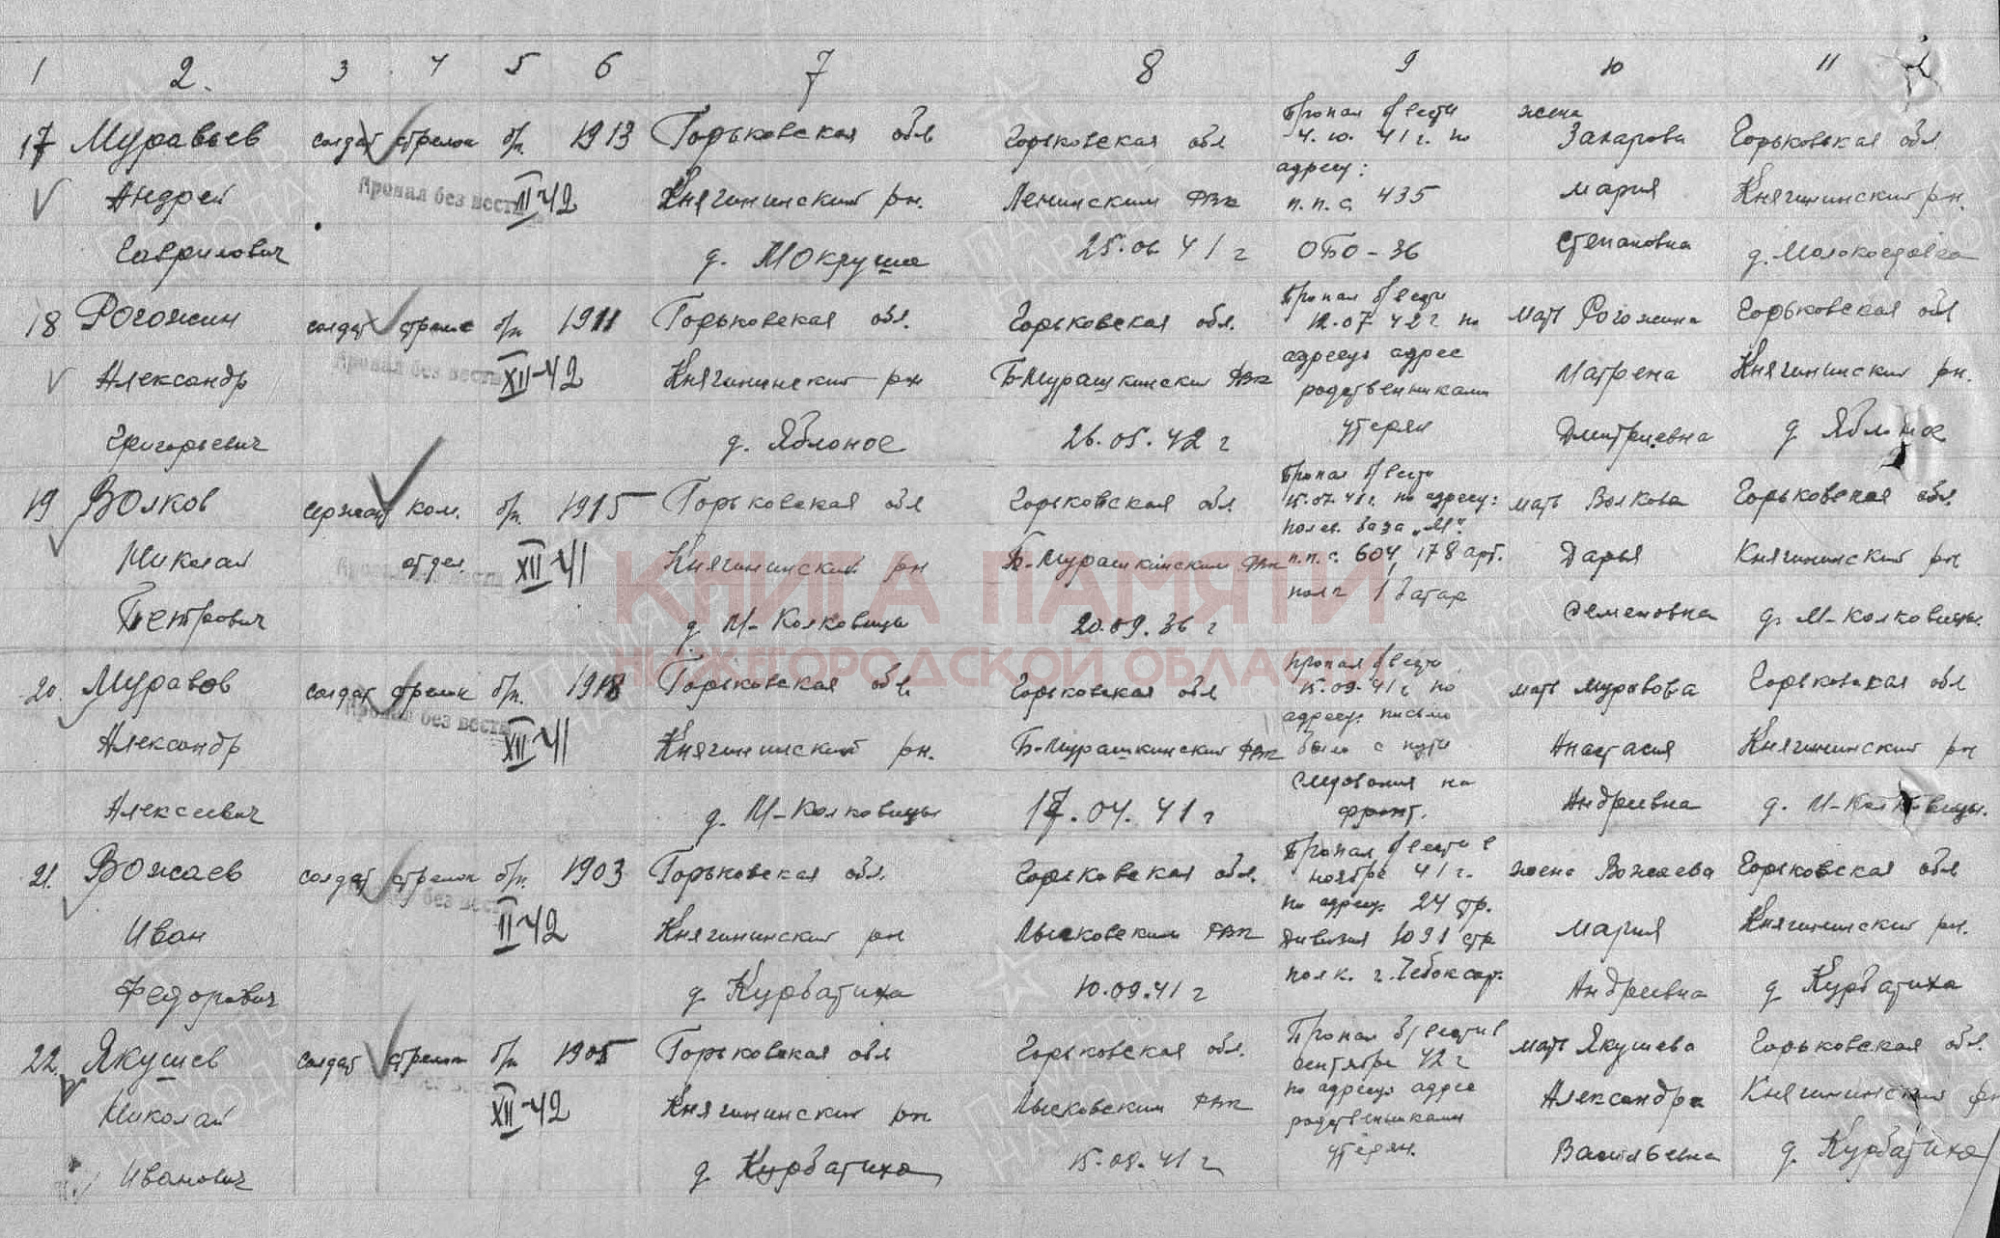 1 2. 3 4 5 6 7 8 9 10 11
17 Муравьев солдат стрелок б/п. 1913 Горьковская обл Горьковская обл Пропал б/вести 4.10.41г. по адресу: жена Захарова Горьковская обл.
Андрей Пропал без вести II-42 Княгининский рн. Ленинским РВК п.п.с. 435 Мария Княгининский рн.
Гаврилович д. Мокруша 25.06 41 г ОБО-36 Степановна д.
18 Рогожин солдат стрелк б/п. 1911 Горьковская обл. Горьковская обл. Пропал б/вести 12.07 42 г по мать Рогожина Горьковская обл
Александр Пропал без вести XII-42 Княгининский рн Б-Мурашкинским РВК адресу: адрес родственниками Матрена Княгининский рн.
Григорьевич д. Яблоное 26.05.42 г утерян Дмитриевна д Яблоное
19 Волков сержант ком. б/п. 1915 Горьковская обл Горьковская обл Пропал б/вести 15.07.41г. по адресу: мать Волкова Горьковская обл.
Николай отдел. XII-41 Княгининский рн Б-Мурашкинским РВК полев. база „М". п.п.с. 604, 178 арт. Дарья Княгининский рн
Петрович д. М-Колковицы 20.09.36 г полк 1 батар Семеновна д. М-Колковицы.
20. Муравов солдат стрелк б/п. 1918 Горьковская обл. Горьковская обл Пропал б/вести 15.09.41г по мать Муравова Горьковская обл
Александр Пропал без вести XII-41 Княгининский рн. Б-Мурашкинский РВК адресу: письмо было с пути Анастасия Княгининский рн
Алексеевич д. М-Колковицы 17.04.41 г следования на фронт. Андреевна д. М-Колковицы.
21. Вожаев солдат стрелок б/п. 1903 Горьковская обл. Горьковская обл. Пропал б/вести в ноябре 41 г. жена Вожаева Горьковская обл
Иван без вести II-42 Княгининский рн Лысковским РВК по адресу: 24 стр. дивизия 1091 стр Мария Княгининский рн.
Федорович д Курбатиха 10.09.41 г полк. г. Чебоксар. Андреевна д Курбатиха
22. Якушев солдат стрелок б/п 1905 Горьковская обл Горьковская обл. Пропал б/вести в сентябре 42 г мать Якушева Горьковская обл.
Николай XII-42 Княгининский рн Лысковским РВК по адресу: адрес родственниками Александра Княгининский рн
Иванович д Курбатиха 15.09.41 г утерян. Васильевна д. Курбатиха
КНИГА ПАМЯТИ
НИЖЕГОРОДСКОЙ ОБЛАСТИ